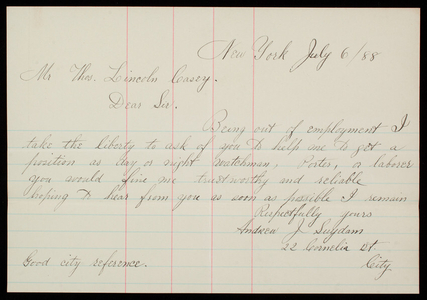 New York July 6/88
Mr Thos. Lincoln Casey.
Dear Sir.
Being out of employment I
take the liberty to ask of you to help me to get a
position as day or night Watchman, Porter, or laborer
you would find me trustworthy and reliable
hoping to hear from you as soon as possible I remain
Respectfully yours
Andrew J Suydam
22 Cornelia St
Good city reference. City